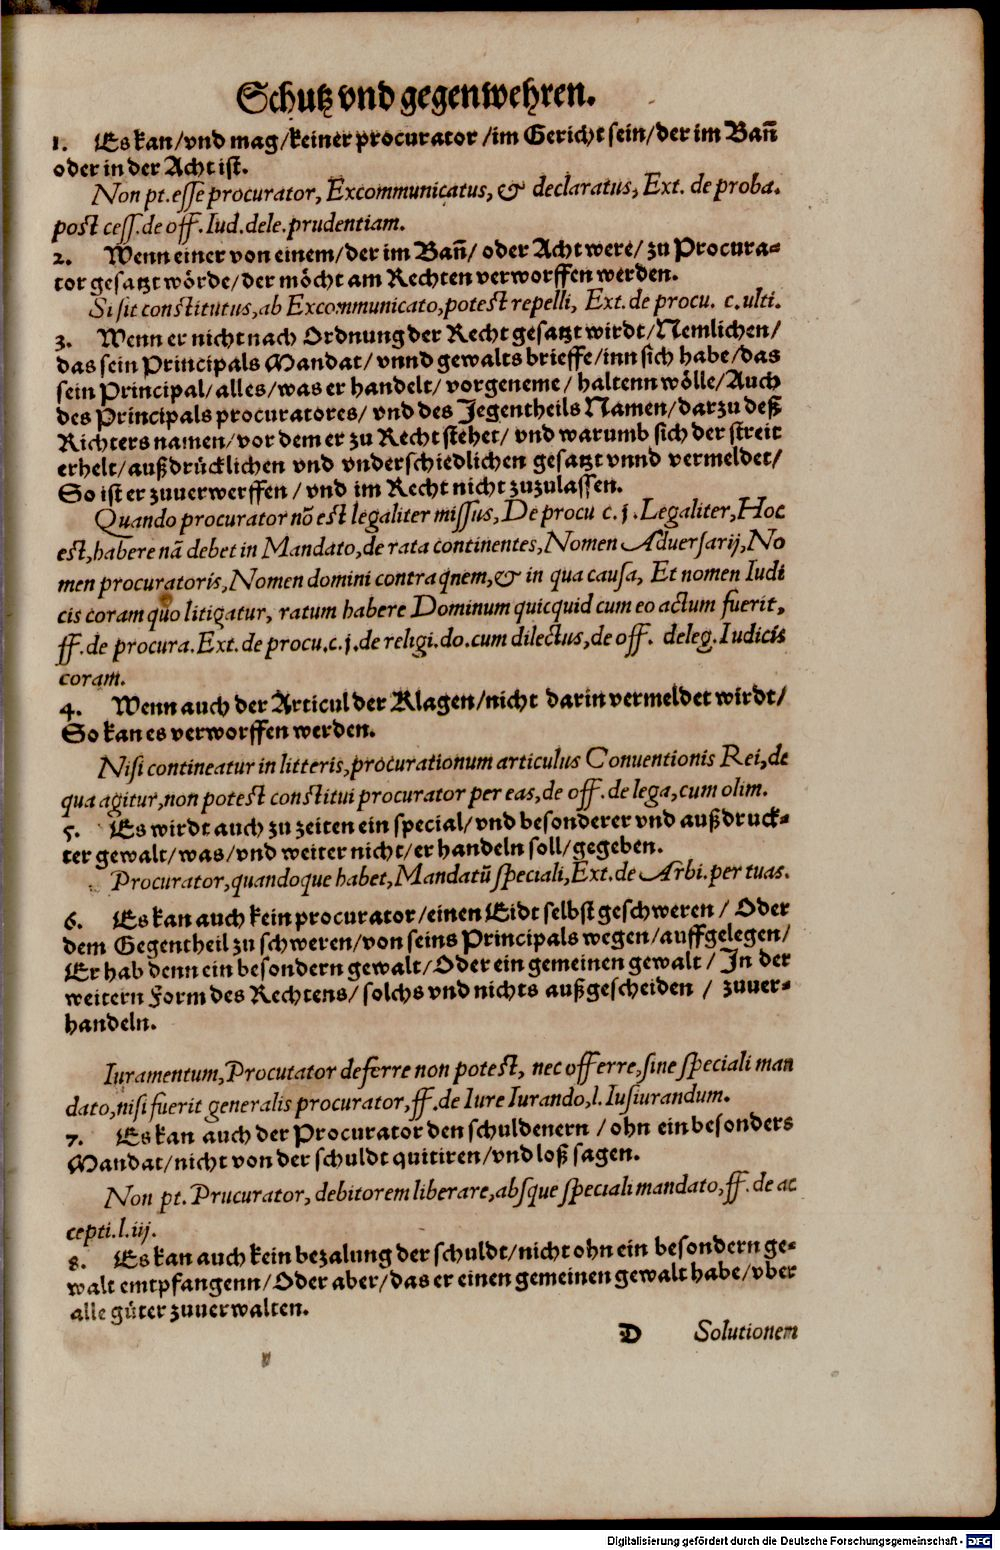 Schutz vnd gegenwehren.
1. Es kan/vnd mag/keiner procurator/im Gericht sein/der im Bañ
oder in der Acht ist.
Non pt. esse procurator, Excommunicatus, & declaratus, Ext. de proba.
post cess. de off. Iud. dele. prudentiam.
2. Wenn einer von einem/der im Bañ/ oder Acht were/ zu Procura-
tor gesatzt wörde/der möcht am Rechten verworffen werden.
Si sit constitutus, ab Excommunicato, potest repelli, Ext. de procu. c. ulti.
3. Wenn er nicht nach Ordnung der Recht gesatzt wirdt/Nemlichen/
das sein Principals Mandat/ vnnd gewalts brieffe/inn sich habe/das
sein Principal/ alles/was er handelt/ vorgeneme/ haltenn wölle/Auch
des Principals procuratores/ vnd des Jegentheils Namen/darzu deß
Richters namen/vor dem er zu Recht stehet/ vnd warumb sich der streit
erhelt/außdrücklichen vnd vnderschiedlichen gesatzt vnnd vermeldet/
So ist er zuuerwerffen/vnd im Recht nicht zuzulassen.
Quando procurator nõ est legaliter missus, De procu c. j. Legaliter, Hoc
est, habere nã debet in Mandato, de rata continentes, Nomen Aduersarij, No
men procuratoris, Nomen domini contra qnem, & in qua causa, Et nomen Iudi
cis coram quo litigatur, ratum habere Dominum quicquid cum eo actum fuerit,
ff. de procura. Ext. de procu. c. j. de religi. do. cum dilectus, de off. deleg. Iudicis
coram.
4. Wenn auch der Articul der Klagen/nicht darin vermeldet wirdt/
So kan es verworffen werden.
Nisi contineatur in litteris, procurationum articulus Conuentionis Rei, de
qua agitur, non potest constitui procurator per eas, de off. de lega, cum olim.
5. Es wirdt auch zu zeiten ein special/vnd besonderer vnd außdruck-
ter gewalt/was/vnd weiter nicht/er handeln soll/gegeben.
Procurator, quandoque habet, Mandatũ speciali, Ext. de Arbi. per tuas.
6. Es kan auch kein procurator/einen Eidt selbst geschweren/ Oder
dem Gegentheil zu schweren/von seins Principals wegen/auffgelegen/
Er hab denn ein besondern gewalt/Oder ein gemeinen gewalt/ In der
weitern Form des Rechtens/ solchs vnd nichts außgescheiden/ zuuer-
handeln.
Iuramentum, Procutator deferre non potest, nec offerre, sine speciali man
dato, nisi fuerit generalis procurator, ff. de Iure Iurando, l. Iusiurandum.
7. Es kan auch der Procurator den schuldenern/ ohn ein besonders
Mandat/nicht von der schuldt quitiren/vnd loß sagen.
Non pt. Prucurator, debitorem liberare, absque speciali mandato, ff. de ac
cepti. l. iij.
8. Es kan auch kein bezalung der schuldt/nicht ohn ein besondern ge-
walt emtpfangenn/Oder aber/das er einen gemeinen gewalt habe/vber
alle güter zuuerwalten.
D Solutionem
Digitalisierung gefördert durch die Deutsche Forschungsgemeinschaft - DFG